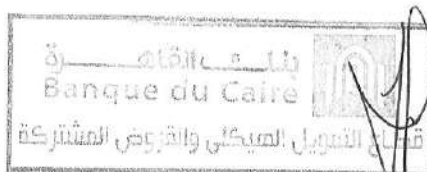 بنك القاهرة
Banque du Caire
قطاع التمويل الهيكلي والقروض المشتركة